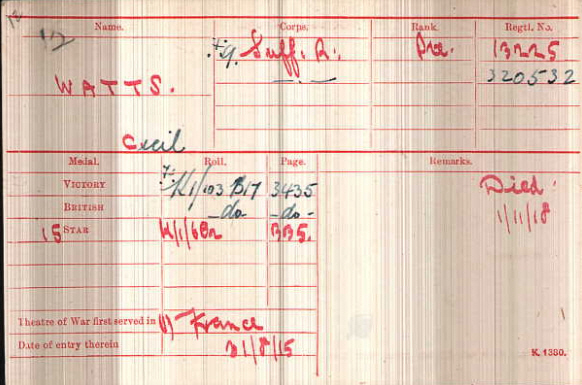 Name. Corps. Rank. Regtl. No.
Suff. R. Pte. 13225
WATTS. 320532
Cecil
Medal. Roll. Page. Remarks.
VICTORY K1/103 B17 3435 Died
BRITISH -do- -do- 1/11/18
15 STAR K/1/6B2 335.
Theatre of War first served in (1) France
Date of entry therein 31/8/15
K. 1380.